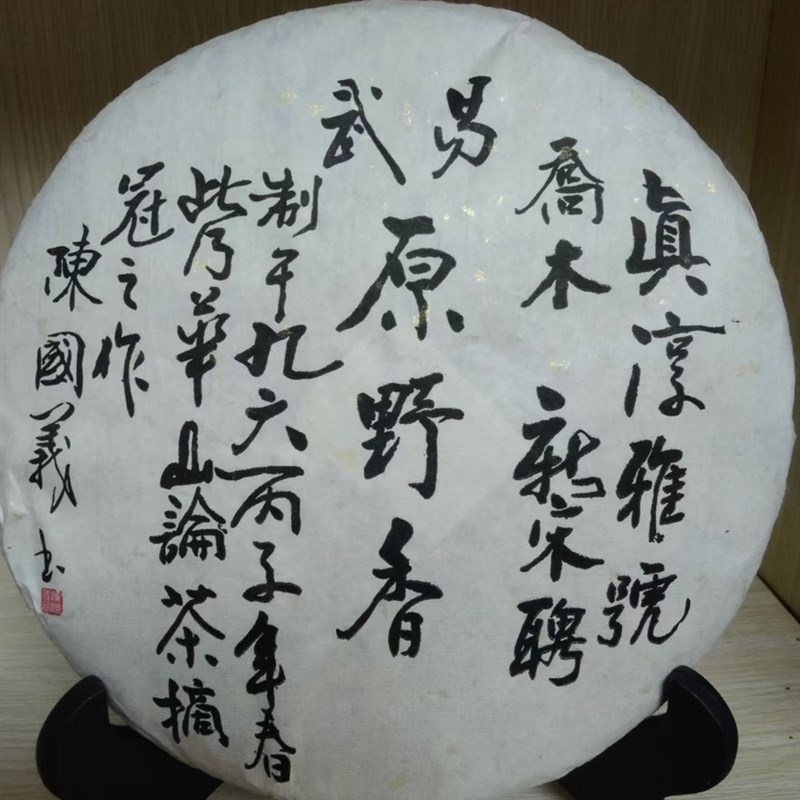 眞淳雅號
喬木
宋聘
易武
原野香
制于九六丙子年春
此乃華山論茶摘
冠之作
陳國義书